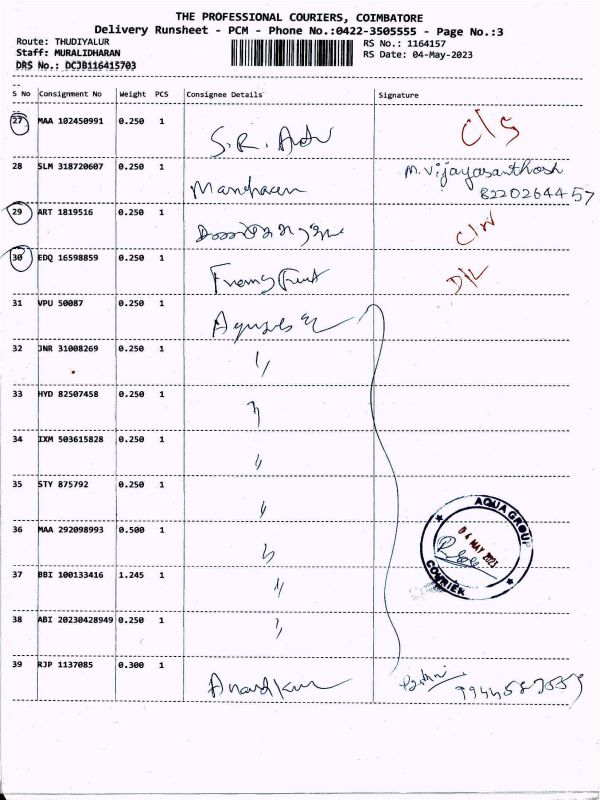 THE PROFESSIONAL COURIERS, COIMBATORE
Delivery Runsheet - PCM - Phone No.:0422-3505555 - Page No.:3
Route: THUDIYALUR
RS No.: 1164157
Staff: MURALIDHARAN
RS Date: 04-May-2023
DRS No.: DCJB116415703
S No Consignment No Weight PCS Consignee Details Signature
27 MAA 102450991 0.250 1 S.R.
28 SLM 318720607 0.250 1 M. Vijayasanthosh
8220264457
29 ART 1819516 0.250 1
30 EDQ 16598859 0.250 1 D/L
31 VPU 50087 0.250 1
32 JNR 31008269 0.250 1 "
33 HYD 82507458 0.250 1 "
34 IXM 503615828 0.250 1 "
35 STY 875792 0.250 1 "
36 MAA 292098993 0.500 1 "
37 BBI 100133416 1.245 1 "
38 ABI 20230428949 0.250 1 "
39 RJP 1137085 0.300 1 Anandkum
AQUA GROUP
04 MAY 2023
COURIER